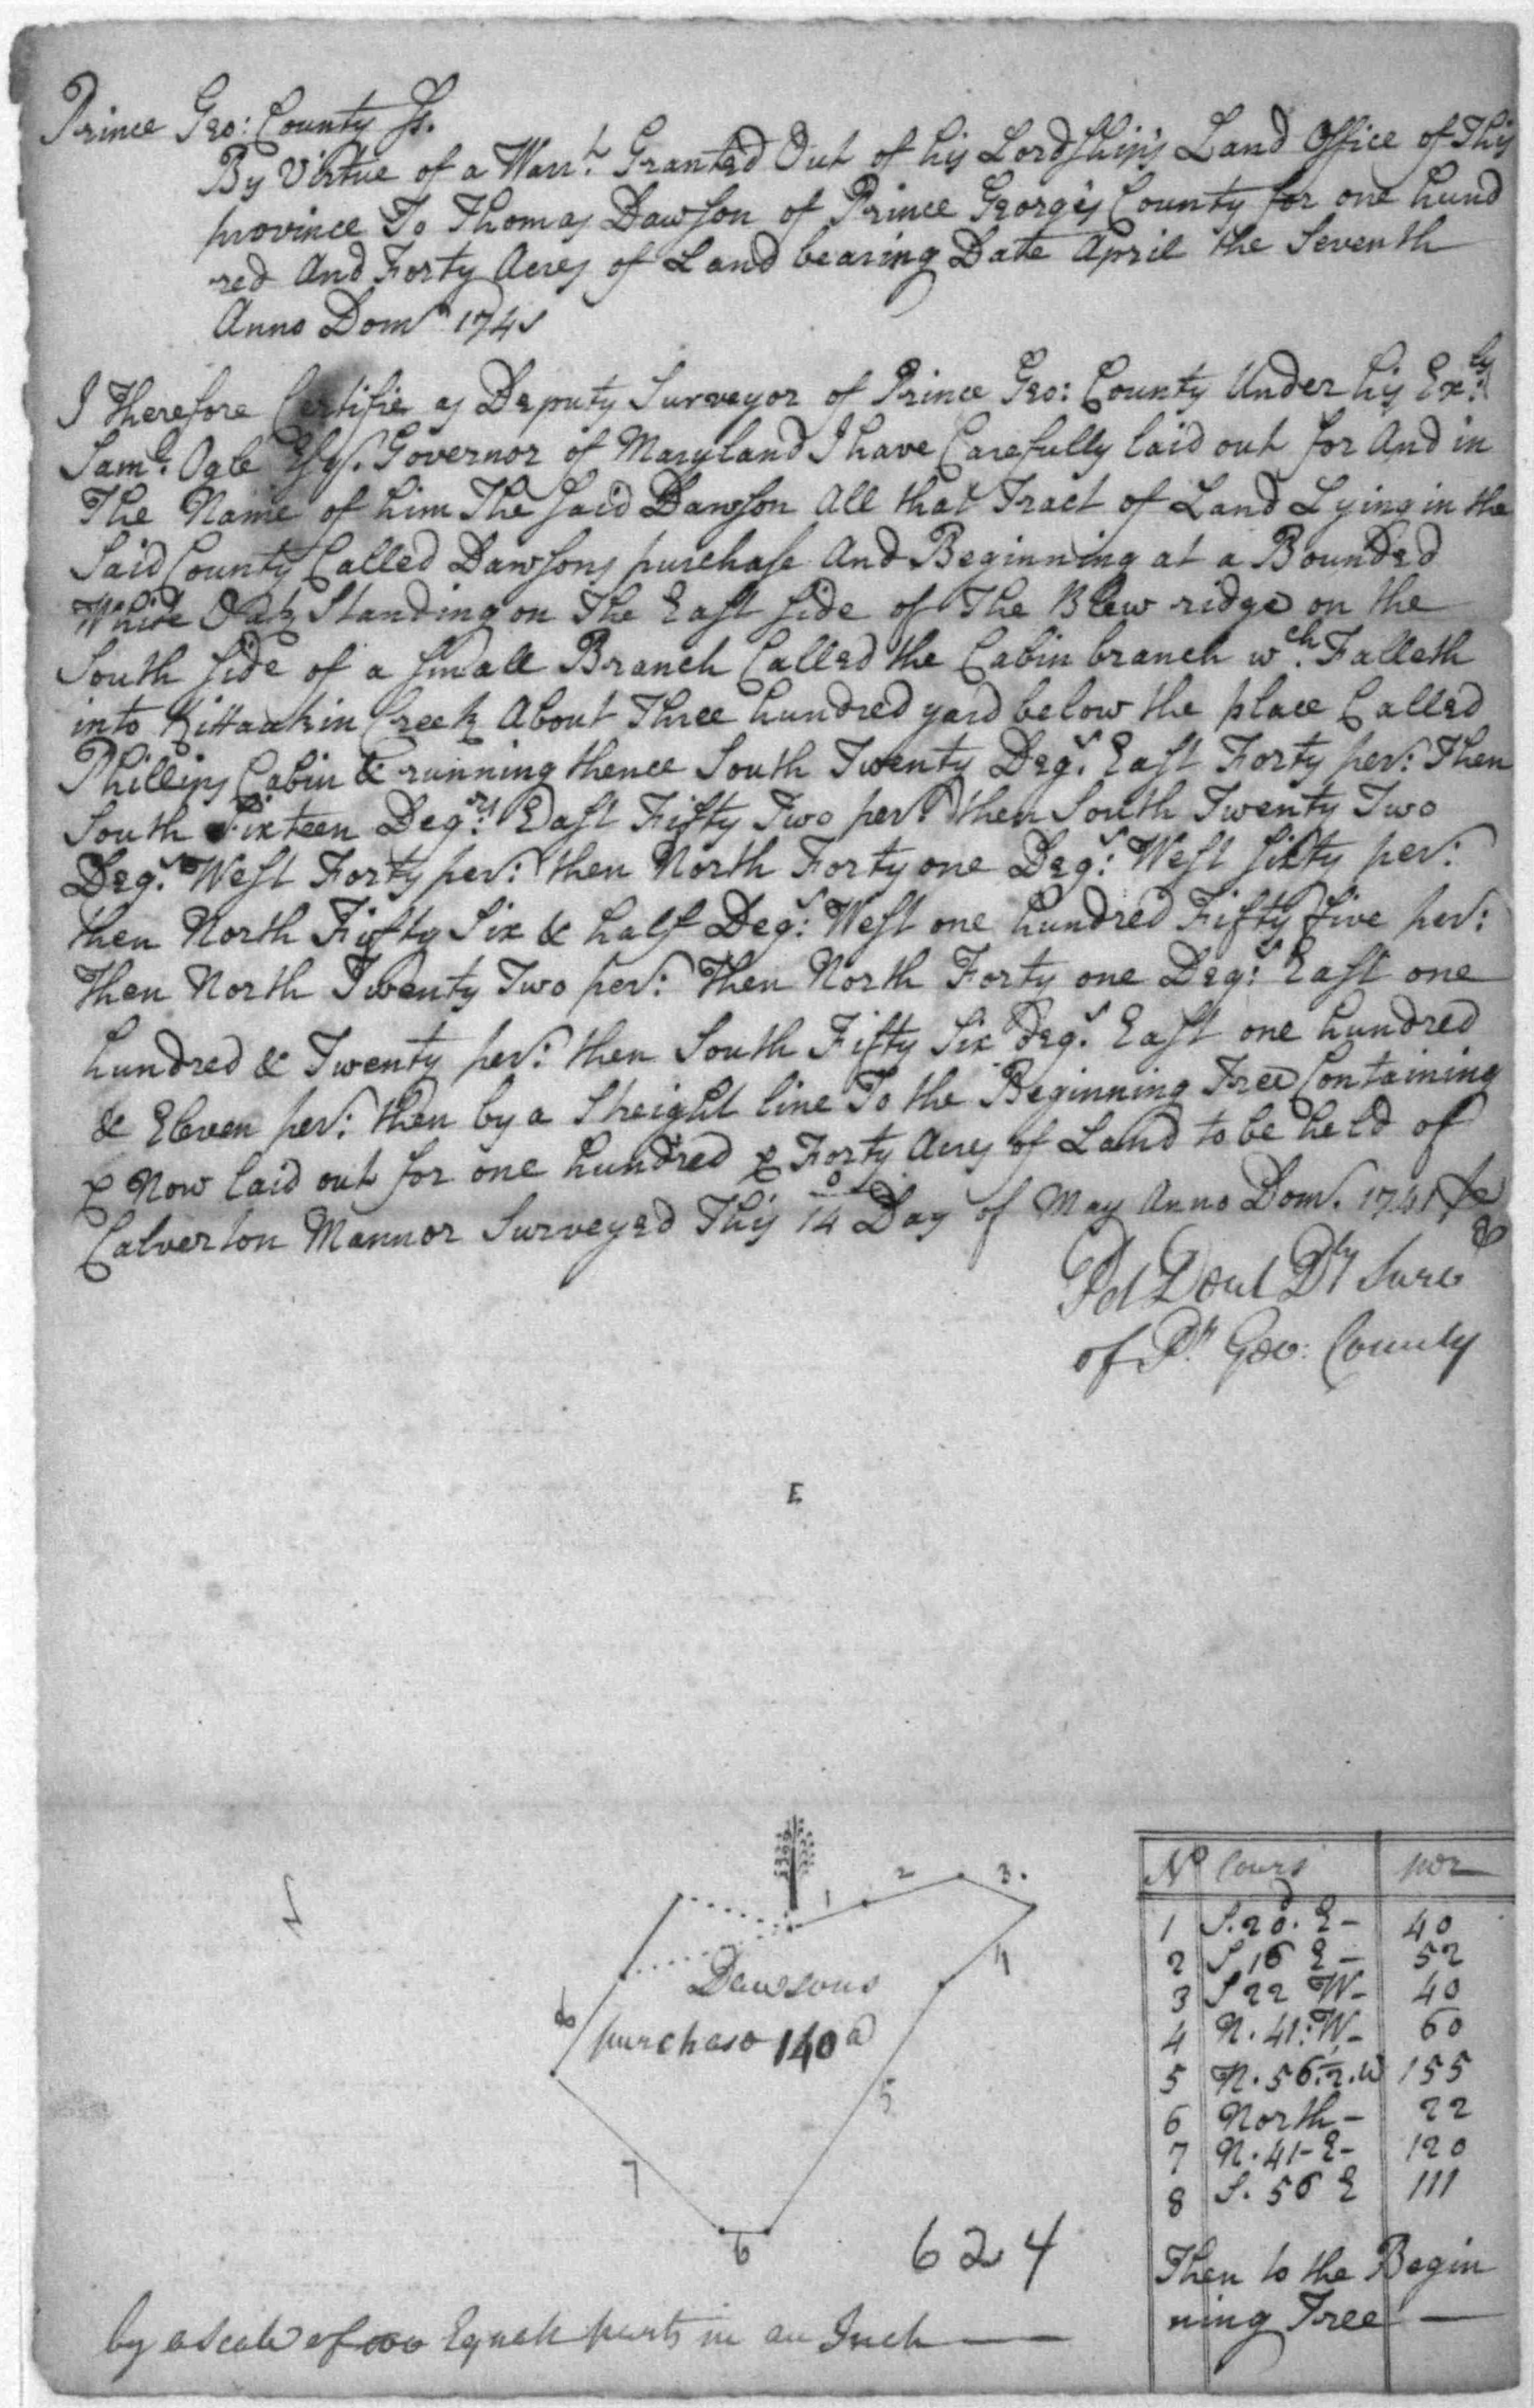 Prince Geo: County Ss.
By Virtue of a Warrt. Granted Out of his Lordships Land Office of This
province To Thomas Dawson of Prince George's County for one hund
red And Forty Acres of Land bearing Date April the Seventh
Anno Dom 1741
I Therefore Certifie as Deputy Surveyor of Prince Geo: County Under his Exly.
Saml. Ogle Esqr. Governor of Maryland I have Carefully laid out for And in
The Name of him The Said Dawson All that Tract of Land Lying in the
Said County Called Dawsons purchase And Beginning at a Bounded
White Oak Standing on The East side of The Blew ridge on the
South side of a small Branch Called the Cabin branch wch. Falleth
into Kittaakin Creek About Three hundred yard below the place Called
Phillips Cabin & running thence South Twenty Degs. East Forty per: Then
South Sixteen Degrs. East Fifty Two per: then South Twenty Two
Degs. West Forty per: then North Forty one Degs: West sixty per:
then North Fifty Six & half Degs: West one hundred Fifty five per:
Then North Twenty Two per: Then North Forty one Degs: East one
hundred & Twenty per: then South Fifty Six degs. East one hundred
& Eleven per: then by a Streight line To the Beginning Tree Containing
& Now laid out for one hundred & Forty Acres of Land to be held of
Calverton Mannor Surveyed This 14 Day of May Anno Dom. 1741
Dty Surv
of Pr Geo: County
E
1
2
3.
4
Dawsons
purchase 140 a
8
5
7
6
624
by a Scale of Equal parts in an Inch
No Cours per
1 S. 20. E - 40
2 S 16 E - 52
3 S 22 W - 40
4 N. 41: W - 60
5 N. 56. 1/2. W 155
6 North - 22
7 N. 41 - E - 120
8 S. 56 E 111
Then to the Begin
ning Tree